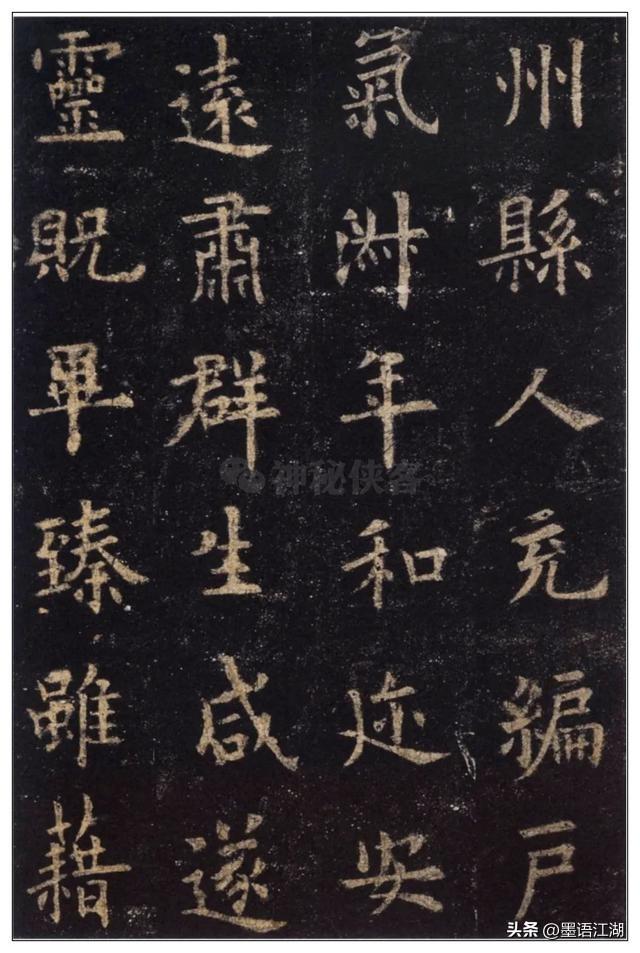 州縣人充編戶
氣淑年和迩安
遠肅群生咸遂
靈貺畢臻雖藉
神秘侠客
头条 @墨语江湖